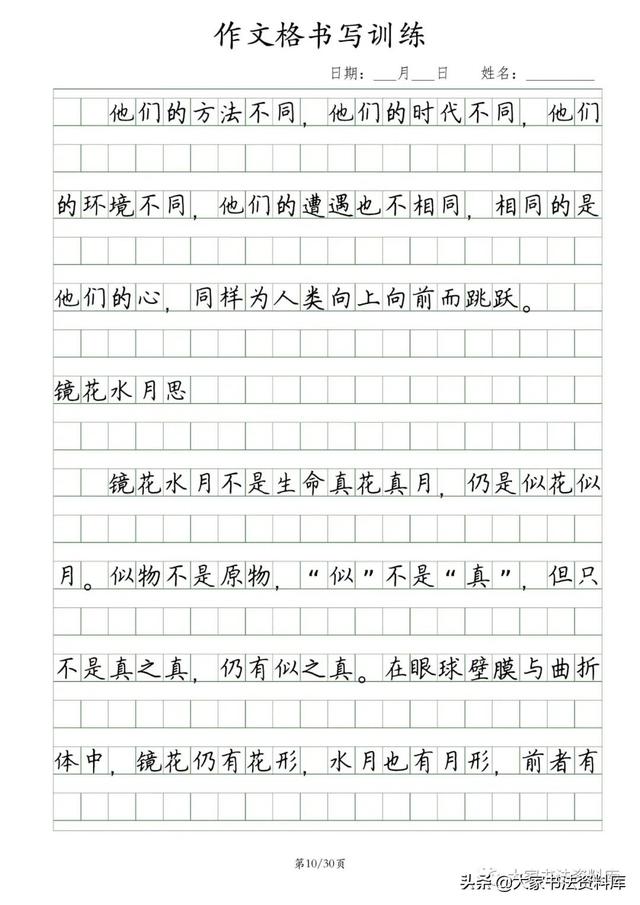 作文格书写训练
日期：___月___日 姓名：________
他们的方法不同，他们的时代不同，他们
的环境不同，他们的遭遇也不相同，相同的是
他们的心，同样为人类向上向前而跳跃。
镜花水月思
镜花水月不是生命真花真月，仍是似花似
月。似物不是原物，“似”不是“真”，但只
不是真之真，仍有似之真。在眼球壁膜与曲折
体中，镜花仍有花形，水月也有月形，前者有
第10/30页
大家书法资料库
头条@大家书法资料库